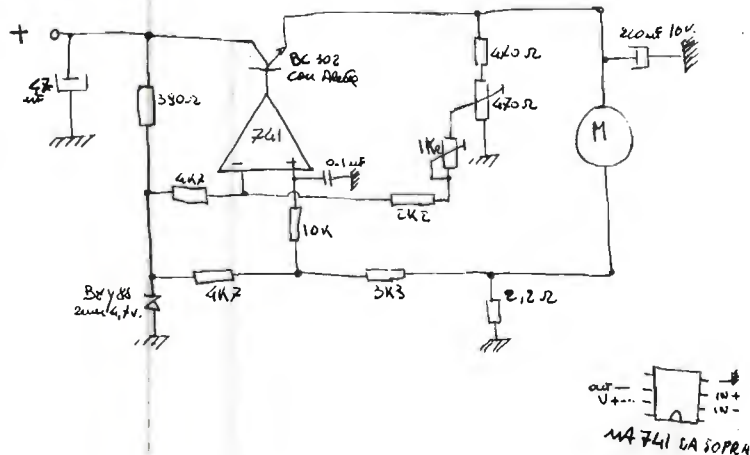 +
47
uF
390Ω
BC 302
con Aletta
741
-
+
0.1 uF
4K7
10K
2K2
1K
470Ω
470Ω
220uF 10V.
M
BZY88
Zener 4,7V.
4K7
3K3
2,2Ω
out
V+
IN+
IN-
MA 741 DA SOPRA